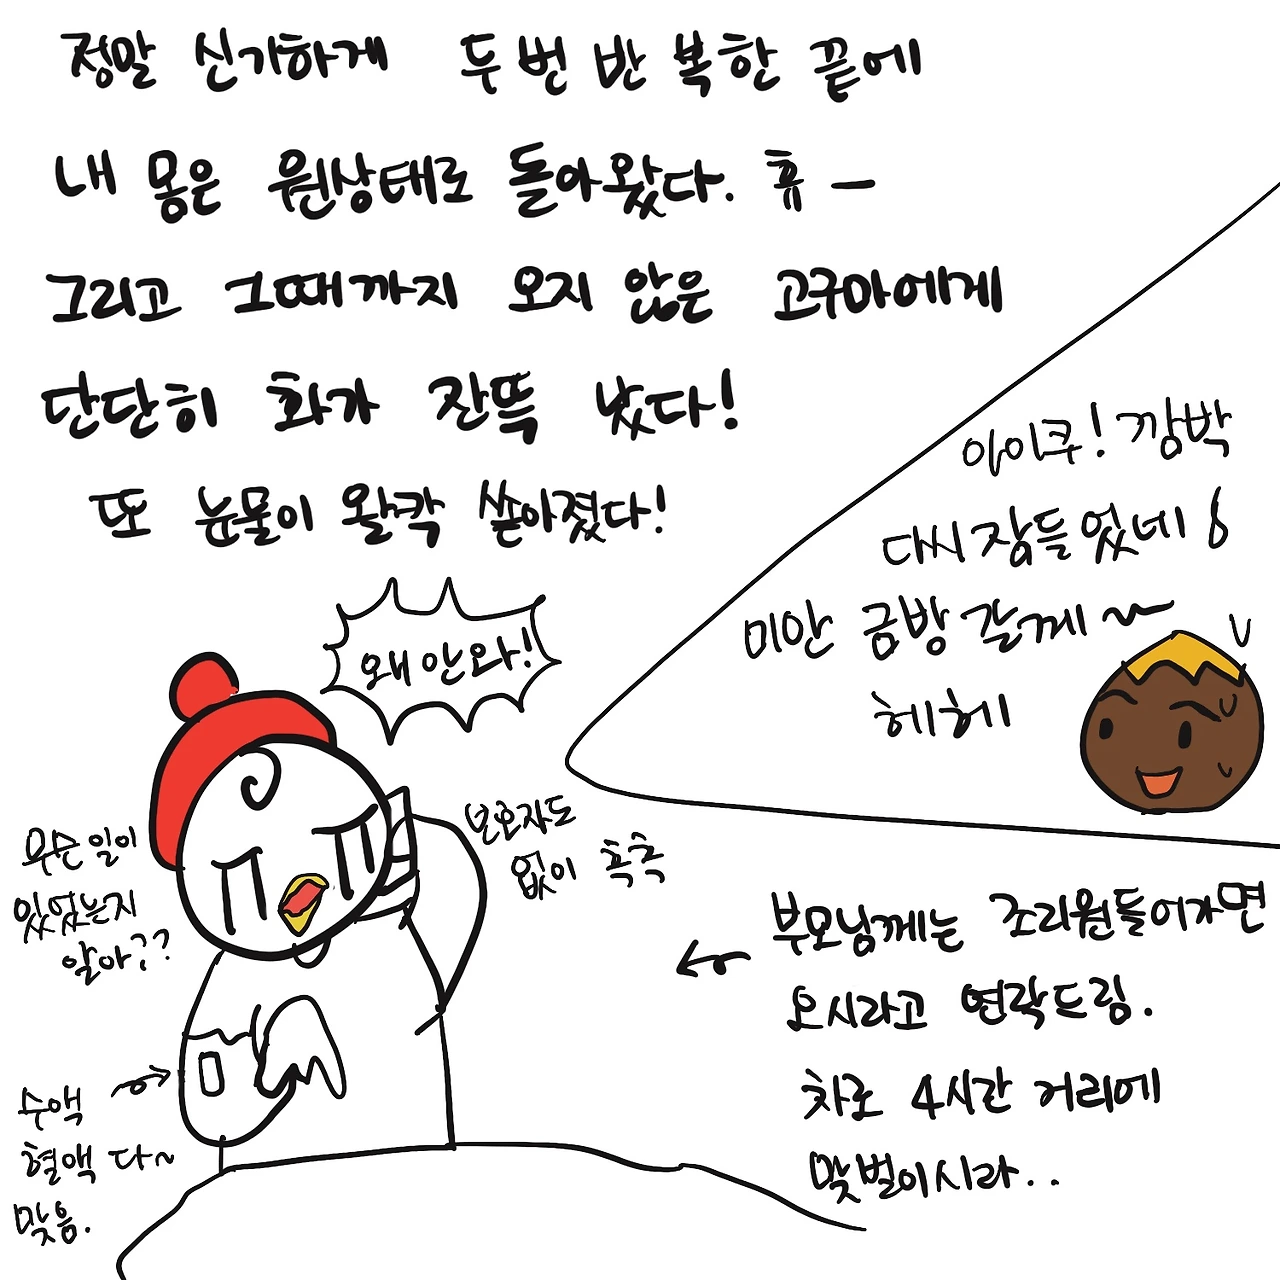 정말 신기하게 두번 반복한 끝에
내 몸은 원상태로 돌아왔다. 휴 -
그리고 그때까지 오지 않은 고구마에게
단단히 화가 잔뜩 났다!
또 눈물이 왈칵 쏟아졌다!
아이쿠! 깜박
다시 잠들었네
미안 금방 갈께~
헤헤
왜 안와!
보호자도
없이 흑흑
무슨일이
있었는지
알아??
부모님께는 조리원들어가면
오시라고 연락드림.
차로 4시간 거리에
맞벌이시라..
수액
혈액 다~
맞음.